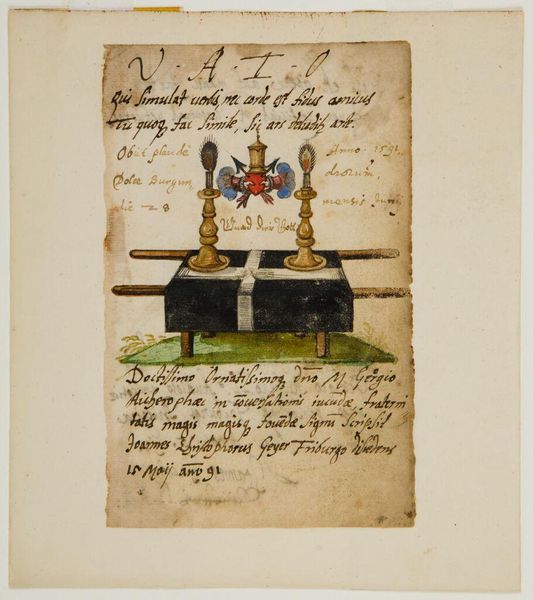 V · A · I · O
Qui simulat verbis, nec corde est fidus amicus
Tu quoq fac simile, sic ars deluditr arte.
Obiit Anno 1591.
Dolae Burgun diorum,
die 28 mensis Junij
Gott
Doctissimo Ornatissimoq dno M Georgio
in conversationis iucundae, fraterni
tatis magis magisq fovendae signum scripsit
Joannes Christophorus Geyer Friburgo
15 Maij anno 91